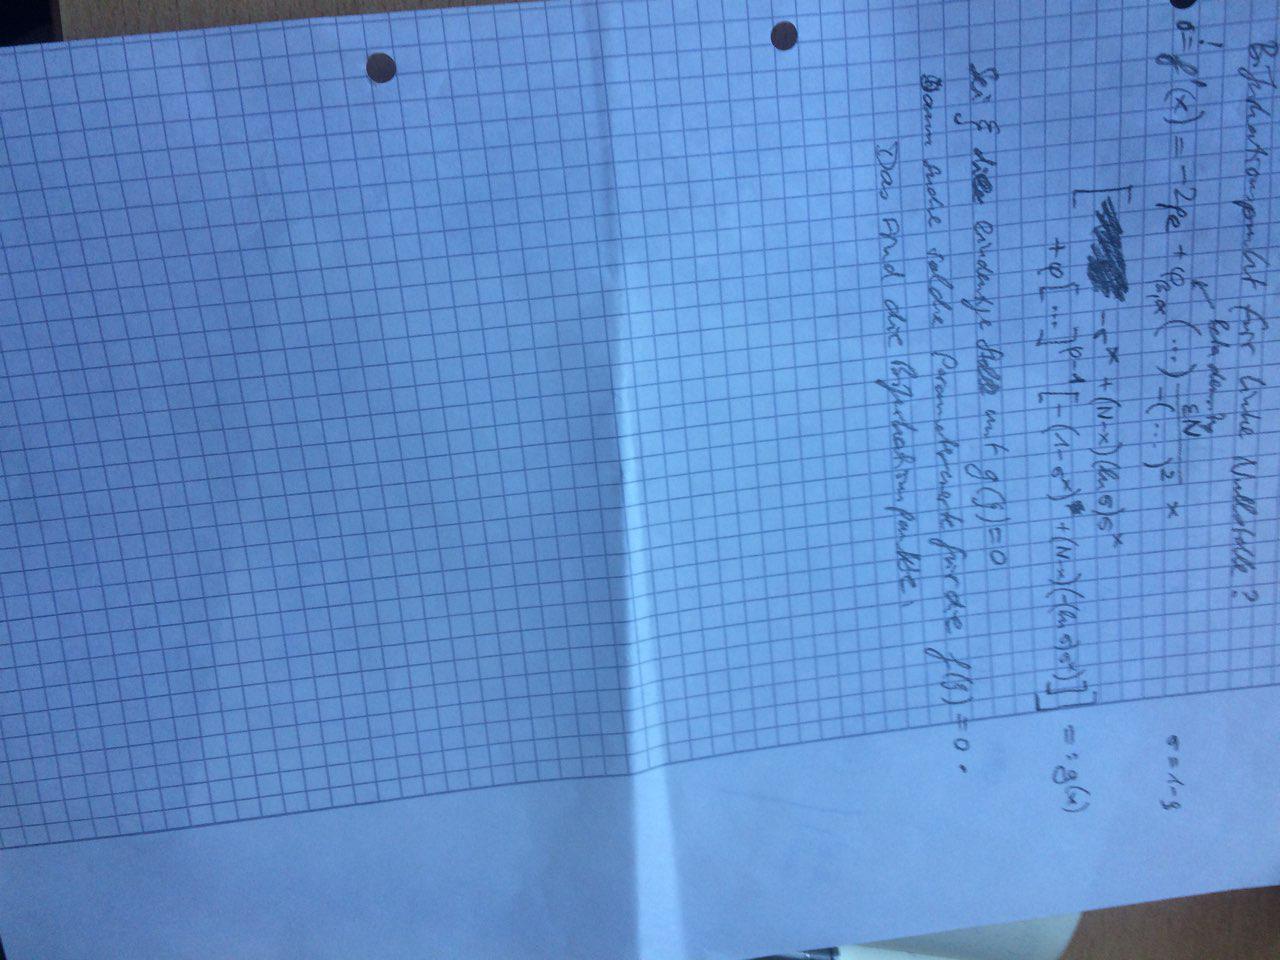 Bifurkationspunkt für linke Nullstelle?
0 = f'(x) = -2pε + φ (...) εN / -(...)² x
σ = 1-q
[ -σˣ + (N-x)(ln σ)σˣ
+ φ[...]^{p-1} [-(1-σˣ) + (N-x)(-(ln σ)σˣ)]] =: g(x)
Sei ξ die eindeutige Stelle mit g(ξ)=0
Dann suche solche Parameterwerte für die f(ξ)=0.
Das sind die Bifurkationspunkte.